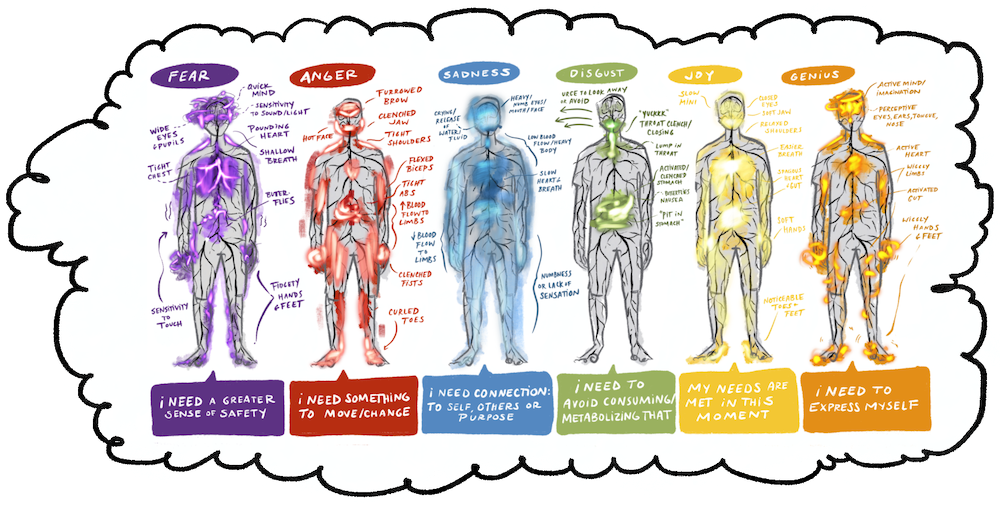 FEAR
QUICK
MIND
SENSITIVITY
TO SOUND/LIGHT
WIDE
EYES
& PUPILS
POUNDING
HEART
SHALLOW
BREATH
TIGHT
CHEST
BUTTER-
FLIES
SENSITIVITY
TO
TOUCH
FIDGETY
HANDS
& FEET
i NEED A GREATER
SENSE OF SAFETY
ANGER
FURROWED
BROW
CLENCHED
JAW
HOT FACE
TIGHT
SHOULDERS
FLEXED
BICEPS
TIGHT
ABS
↑ BLOOD
FLOW TO
LIMBS
CLENCHED
FISTS
CURLED
TOES
i NEED SOMETHING
TO MOVE/CHANGE
SADNESS
CRYING/
RELEASE
OF
WATER/
FLUID
HEAVY/
NUMB EYES/
MOUTH/FACE
LOW BLOOD
FLOW/HEAVY
BODY
SLOW
HEART &
BREATH
↓ BLOOD
FLOW
TO
LIMBS
NUMBNESS
OR LACK OF
SENSATION
i NEED CONNECTION:
TO SELF, OTHERS OR
PURPOSE
DISGUST
URGE TO LOOK AWAY
OR AVOID
"YUCKKK"
THROAT CLENCH/
CLOSING
LUMP IN
THROAT
ACTIVATED/
CLENCHED
STOMACH
NAUSEA
"PIT IN
STOMACH"
i NEED TO
AVOID CONSUMING/
METABOLIZING THAT
JOY
SLOW
MIND
CLOSED
EYES
SOFT JAW
RELAXED
SHOULDERS
EASIER
BREATH
SPACIOUS
HEART
& GUT
SOFT
HANDS
NOTICEABLE
TOES &
FEET
MY NEEDS ARE
MET IN THIS
MOMENT
GENIUS
ACTIVE MIND/
IMAGINATION
PERCEPTIVE
EYES, EARS, TONGUE,
NOSE
ACTIVE HEART
WIGGLY
LIMBS
ACTIVATED
GUT
WIGGLY
HANDS
& FEET
i NEED TO
EXPRESS MYSELF